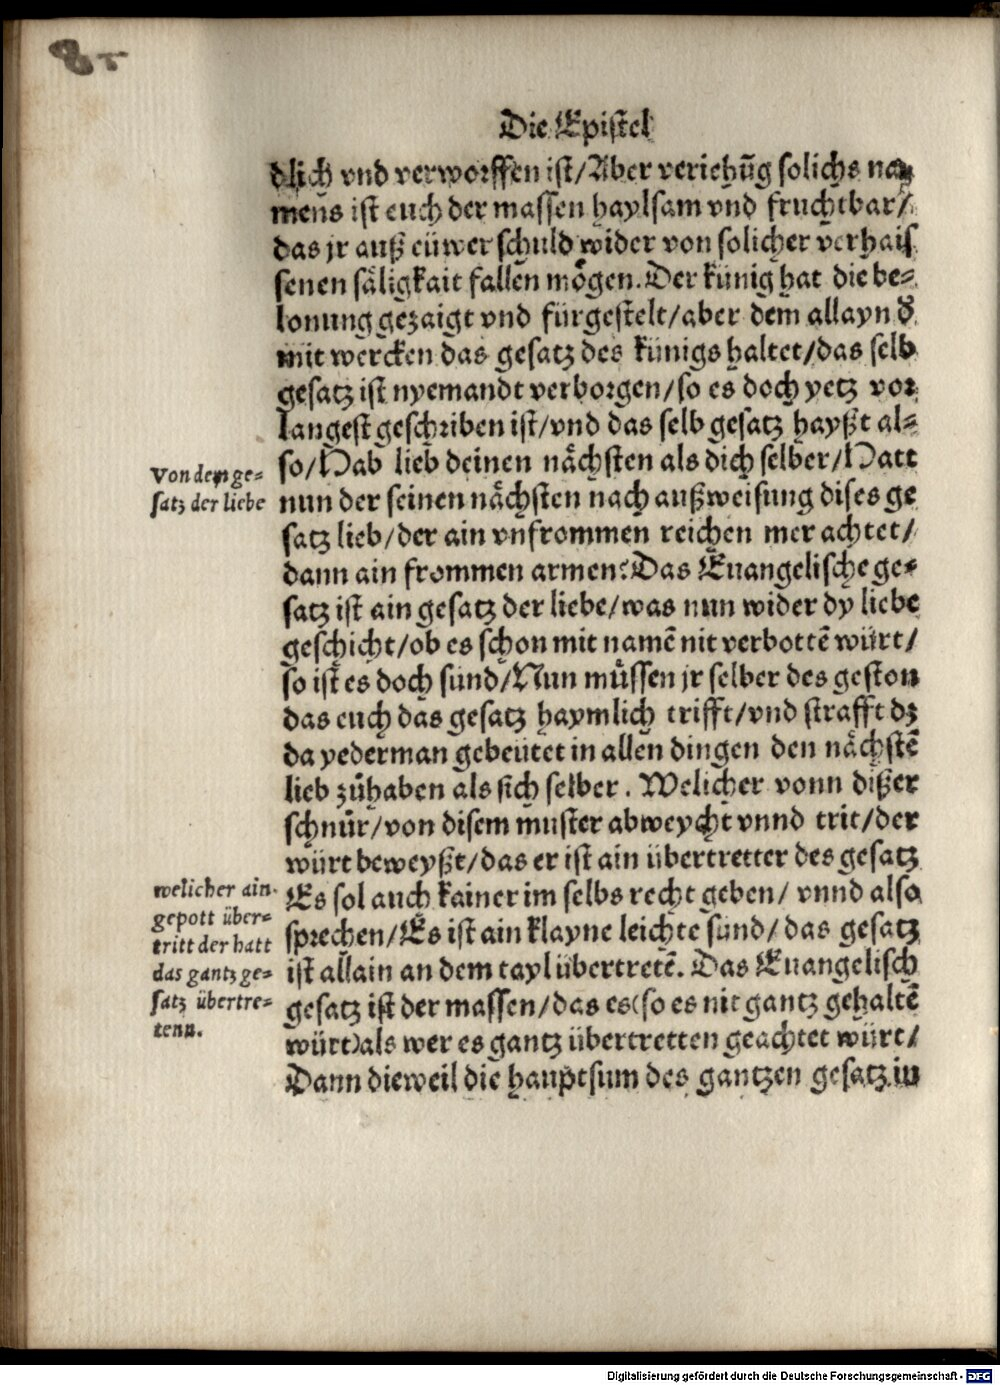 85
Die Epistel
dlich vnd verworffen ist/Aber veriehūg solichs na
mens ist euch der massen haylsam vnd fruchtbar/
das jr auß eüwer schuld wider von solicher verhais
senen säligkait fallen mögen. Der künig hat die be-
lonung gezaigt vnd fürgestelt/aber dem allayn d'
mit wercken das gesatz des künigs haltet/das selb
gesatz ist nyemandt verborgen/so es doch yetz vor
langest geschriben ist/vnd das selb gesatz hayßt al-
so/Hab lieb deinen nächsten als dich selber/Hatt
Von dem ge-
satz der liebe
nun der seinen nächsten nach außweisung dises ge
satz lieb/der ain vnfrommen reichen mer achtet/
dann ain frommen armen? Das Euangelische ge-
satz ist ain gesatz der liebe/was nun wider dy liebe
geschicht/ob es schon mit namē nit verbottē würt/
so ist es doch sünd/Nun müssen jr selber des geston
das euch das gesatz haymlich trifft/vnd strafft dz
da yederman gebeütet in allen dingen den nächstē
lieb zůhaben als sich selber. Welicher vonn dißer
schnůr/von disem muster abweycht vnnd trit/der
würt beweyßt/das er ist ain übertretter des gesatz
welicher ain
gepott über-
tritt der hatt
das gantz ge-
satz übertre-
tenn.
Es sol auch kainer im selbs recht geben/ vnnd also
sprechen/Es ist ain klayne leichte sünd/ das gesatz
ist allain an dem tayl übertretē. Das Euangelisch
gesatz ist der massen/das es (so es nit gantz gehaltē
würt) als wer es gantz übertretten geachtet würt/
Dann dieweil die hauptsum des gantzen gesatz in
Digitalisierung gefördert durch die Deutsche Forschungsgemeinschaft - DFG